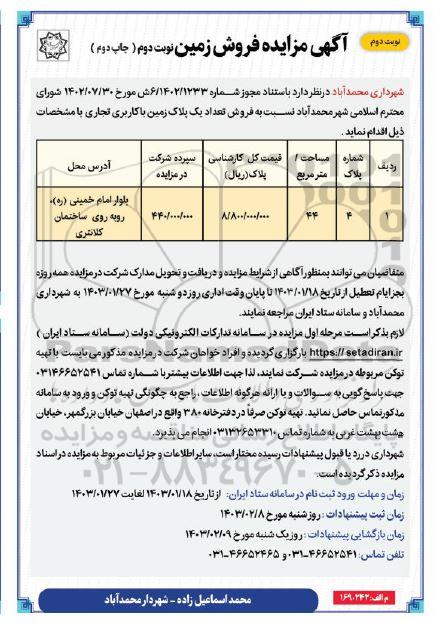 نوبت دوم
آگهی مزایده فروش زمین نوبت دوم ( چاپ دوم )
شهرداری محمدآباد درنظر دارد باستناد مجوز شماره ۶/۱۴۰۲/۱۲۳۳ش مورخ ۱۴۰۲/۰۷/۳۰ شورای
محترم اسلامی شهر محمدآباد نسبت به فروش تعداد یک پلاک زمین باکاربری تجاری با مشخصات
ذیل اقدام نماید .
ردیف
شماره پلاک
مساحت / متر مربع
قیمت کل کارشناسی پلاک(ریال)
سپرده شرکت در مزایده
آدرس محل
۱
۴
۴۴
۸/۸۰۰/۰۰۰/۰۰۰
۴۴۰/۰۰۰/۰۰۰
بلوار امام خمینی (ره)،
روبه روی ساختمان
کلانتری
متقاضیان می توانند بمنظور آگاهی از شرایط مزایده و دریافت و تحویل مدارک شرکت در مزایده همه روزه
بجز ایام تعطیل از تاریخ ۱۴۰۳/۰۱/۱۸ تا پایان وقت اداری روز دو شنبه مورخ ۱۴۰۳/۰۱/۲۷ به شهرداری
محمدآباد و سامانه ستاد ایران مراجعه نمایند.
لازم بذکر است مرحله اول مزایده در سامانه تدارکات الکترونیکی دولت (سامانه ستاد ایران )
https:// setadiran.ir بارگزاری گردیده و افراد خواهان شرکت در مزایده مذکور می بایست با تهیه
توکن مربوطه در مزایده شرکت نمایند، لذا جهت اطلاعات بیشتر با شماره تماس ۰۳۱۴۶۶۵۲۵۴۱
جهت پاسخ گویی به سوالات و یا ارائه هرگونه اطلاعات ، راجع به چگونگی تهیه توکن و ورود به سامانه
مذکور تماس حاصل نمائید. تهیه توکن صرفاً در دفترخانه ۳۸۰ واقع در اصفهان خیابان بزرگمهر، خیابان
هشت بهشت غربی به شماره تماس ۰۳۱۳۲۶۵۳۳۱۰ انجام می پذیرد.
شهرداری در رد یا قبول پیشنهادات رسیده مختار است، سایر اطلاعات و جزئیات مربوط به مزایده در اسناد
مزایده ذکر گردیده است.
زمان و مهلت ورود ثبت نام در سامانه ستاد ایران: از تاریخ ۱۴۰۳/۰۱/۱۸ لغایت ۱۴۰۳/۰۱/۲۷
زمان ثبت پیشنهادات : روز شنبه مورخ ۱۴۰۳/۰۲/۸
زمان بازگشایی پیشنهادات : روز یک شنبه مورخ ۱۴۰۳/۰۲/۰۹
تلفن تماس: ۰۳۱-۴۶۶۵۲۵۴۱ و ۰۳۱-۴۶۶۵۲۴۶۵
محمد اسماعیل زاده - شهردار محمدآباد
م الف: ۱۶۹۰۲۴۲
۰۲۱-۸۸۳۴۹۶۷۰-۵